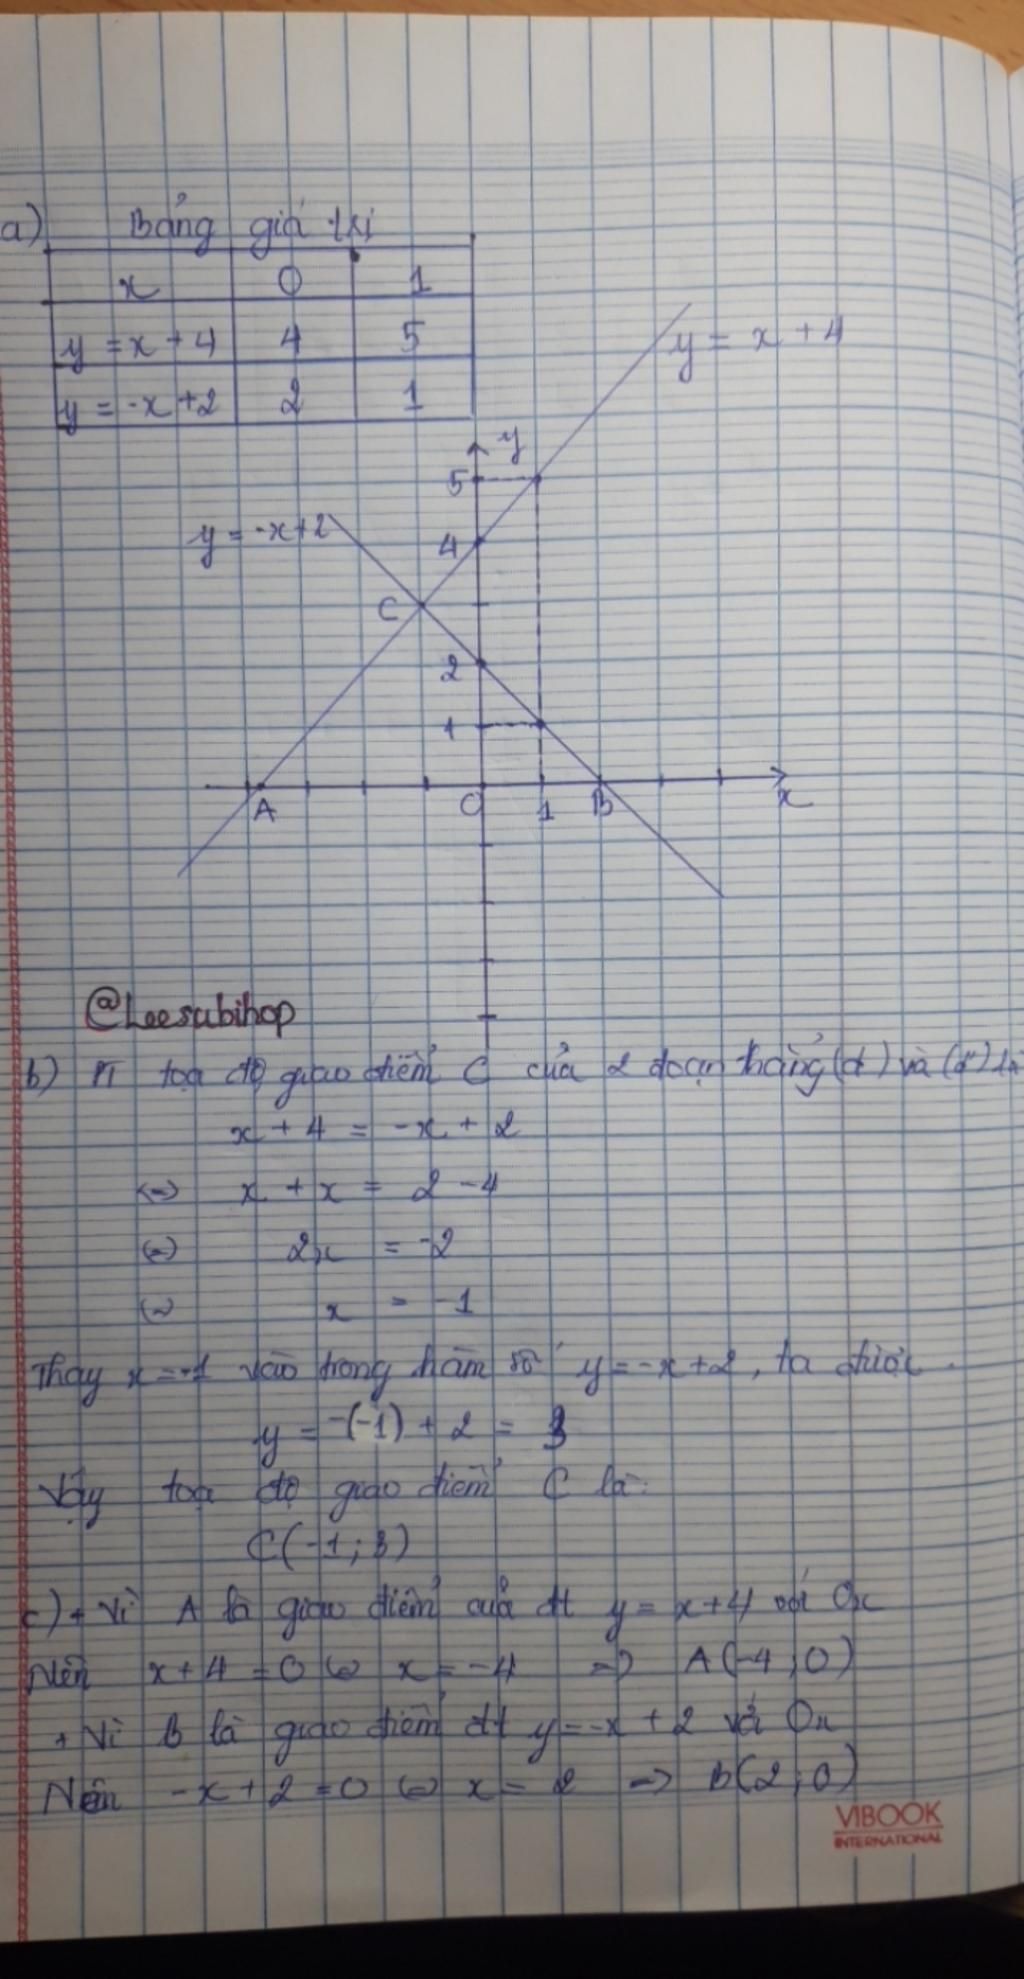 a) Bảng giá trị
x 0 1
y = x + 4 4 5
y = -x + 2 2 1
y = x + 4
y
5
y = -x + 2
4
C
2
1
A O 1 B x
@Leesubihop
b) PT toạ độ giao điểm C của 2 đoạn thẳng (d) và (d') là
x + 4 = -x + 2
<=> x + x = 2 - 4
<=> 2x = -2
<=> x = -1
Thay x = -1 vào trong hàm số y = -x + 2, ta được
y = -(-1) + 2 = 3
Vậy toạ độ giao điểm C là:
C(-1; 3)
c) + Vì A là giao điểm của đt y = x + 4 với Ox
Nên x + 4 = 0 <=> x = -4 => A(-4; 0)
+ Vì B là giao điểm đt y = -x + 2 với Ox
Nên -x + 2 = 0 <=> x = 2 => B(2; 0)
VIBOOK
INTERNATIONAL